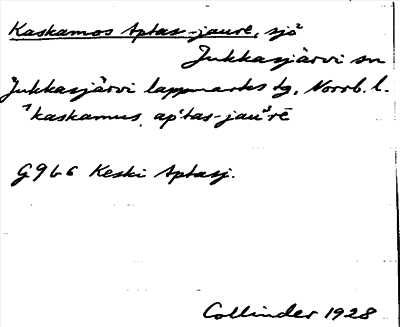 Kaskamos Aptas-jaure, sjö
Jukkasjärvi sn
Jukkasjärvi lappmarks tg. Norrb. l.
`kaskamus, ap'tas-jau͔rē
G 9 b 6 Keski Aptasj.
Collinder 1928